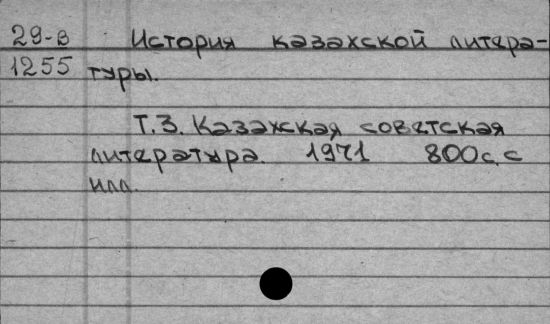 29-в История казахской литера-
1255 туры.
Т.3. Казахская советская
литература. 1971 800с. с
илл.